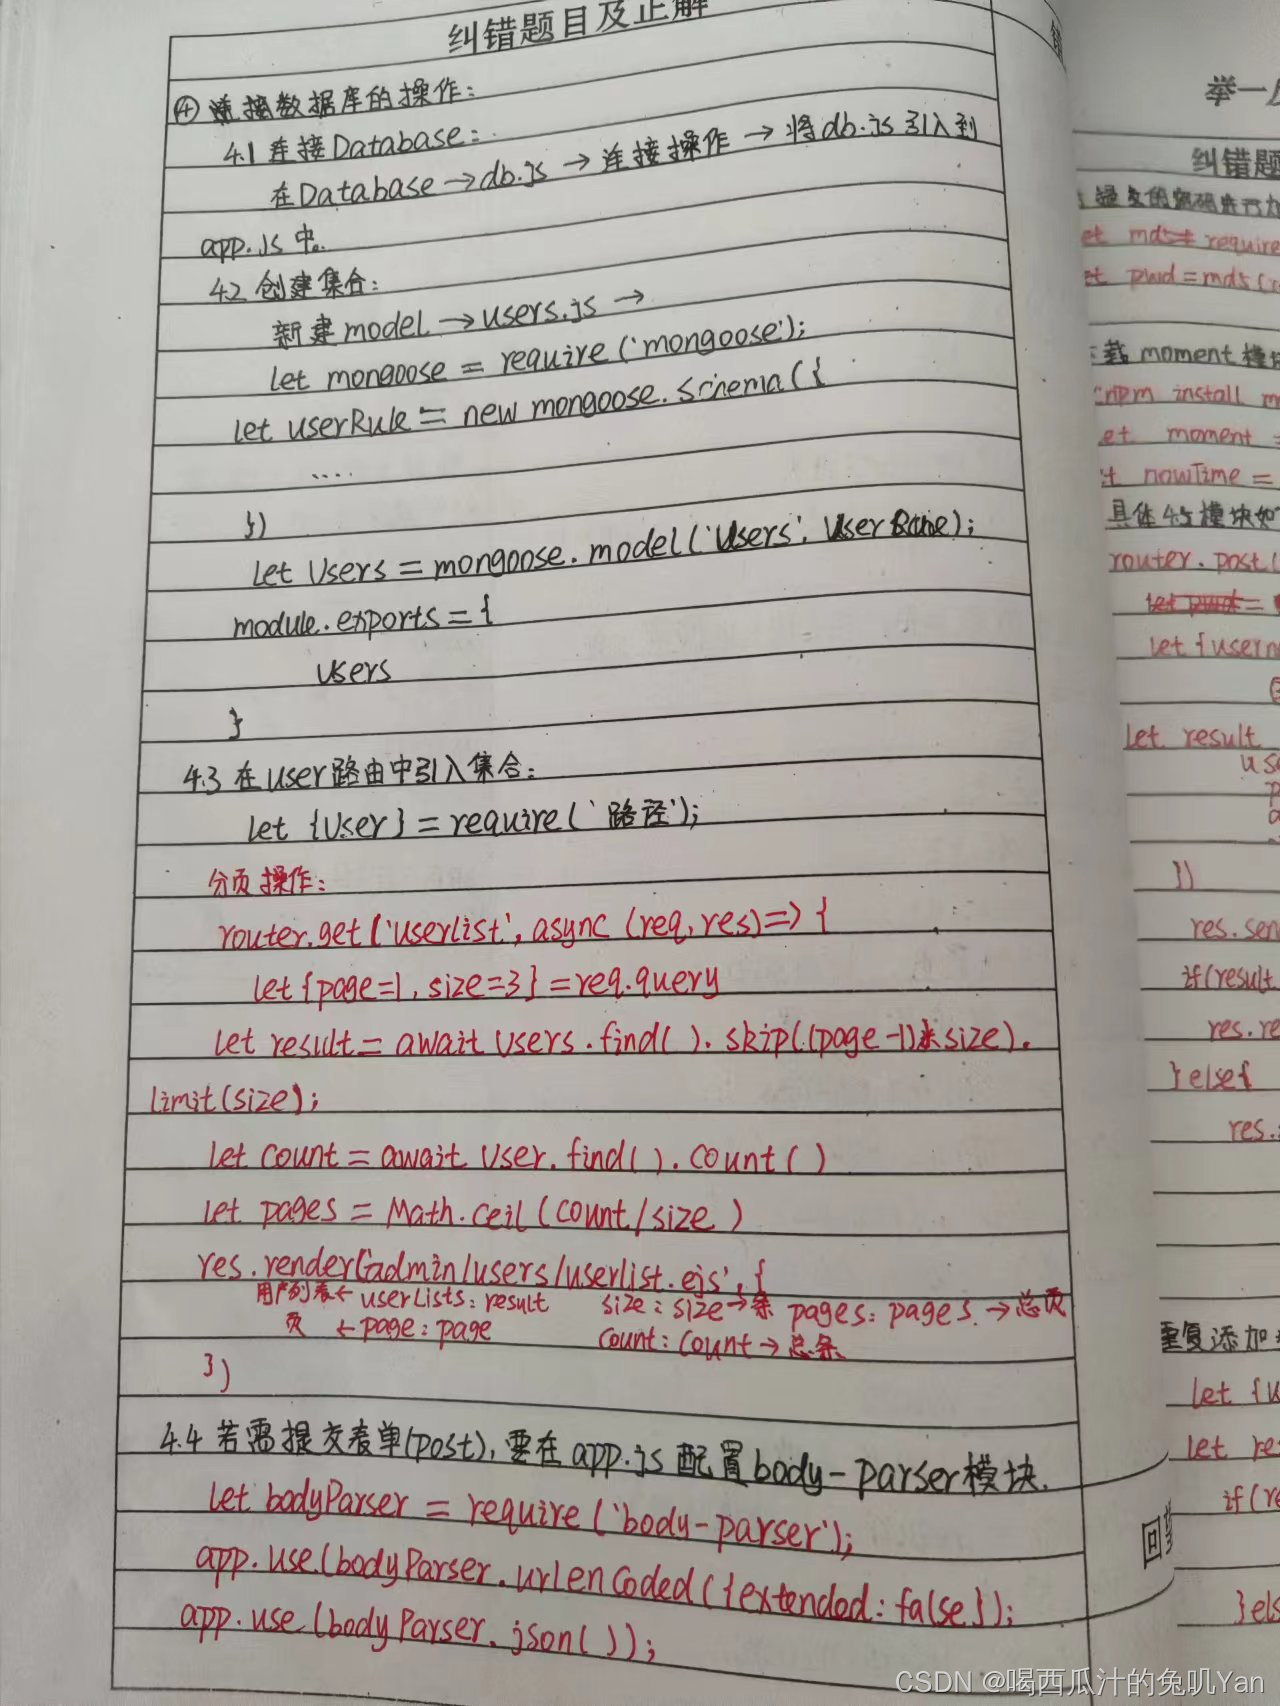 纠错题目及正解
④ 连接数据库的操作:
4.1 连接Database:
在Database→db.js→连接操作→将db.js引入到
app.js中。
4.2 创建集合:
新建model→users.js→
let mongoose = require('mongoose');
let userRule = new mongoose.schema({
....
})
let Users = mongoose.model('users', userRule);
module.exports = {
users
}
4.3 在user路由中引入集合:
let {User} = require('路径');
分页操作:
router.get('userlist', async (req,res)=>{
let{page=1,size=3}=req.query
let result = await users.find().skip((page-1)*size).
limit(size);
let count = await User.find().count()
let pages = Math.ceil(count/size)
res.render('admin/users/userlist.ejs',{
用户列表← userLists:result size:size→条 pages:pages.→总页
页 ←page:page count:count→总条
})
4.4 若需提交表单(post),要在app.js配置body-parser模块.
let bodyParser = require('body-parser');
app.use(bodyParser.urlenCoded({extended:false});
app.use(bodyParser.json());
举一
纠错题
et md5= require
et pwd=md5(
载moment模块
cnpm install m
et moment =
t nowTime =
具体4.5模块如
router.post(
let{usern
let result
})
res.sen
if(result
res.re
}else{
res.
重复添加
let {u
let re
if(re
}els
CSDN @喝西瓜汁的兔叽Yan